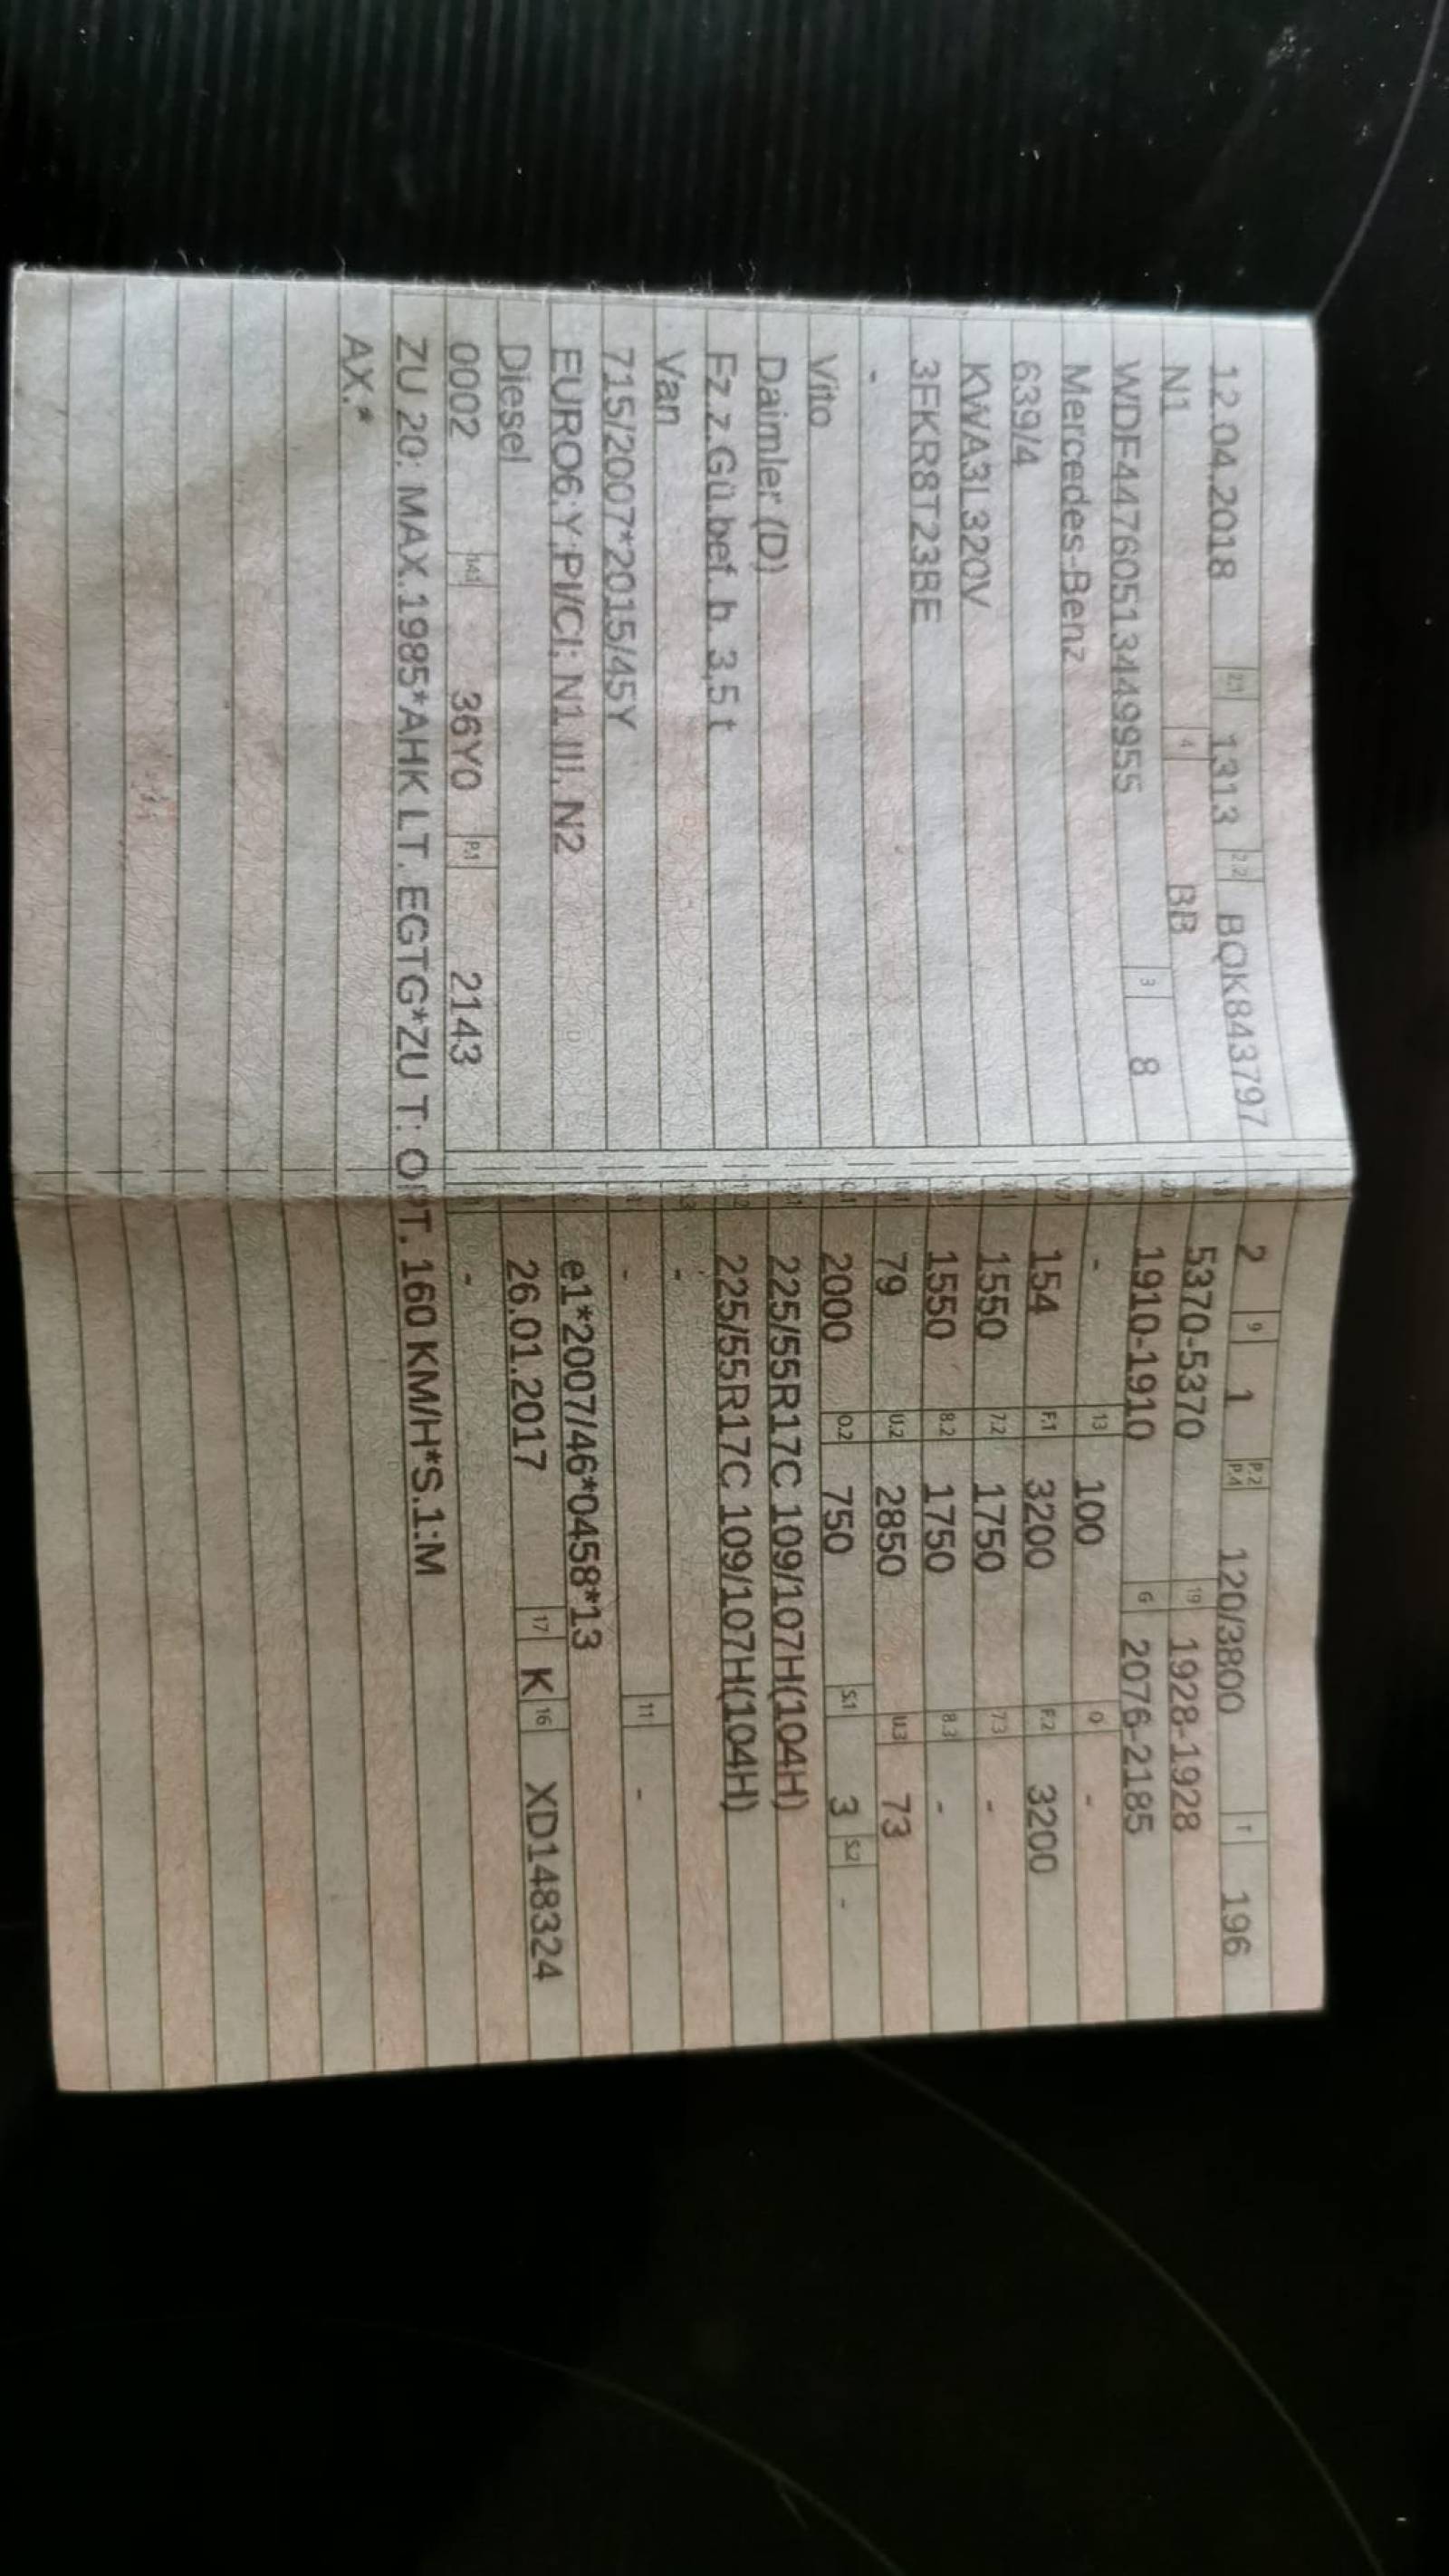 12.04.2018 2.1 1313 2.2 BQK843797
N1 4 BB
WDF44760513449955 3 8
Mercedes-Benz
639/4
KWA3L320V
3FKR8T23BE
-
Vito
Daimler (D)
Fz.z.Gü.bef. b. 3,5 t
Van
715/2007*2015/45Y
EURO6;Y;PI/CI; N1 III, N2
Diesel
0002 14.1 36Y0 P.1 2143
ZU 20: MAX.1985*AHK LT. EGTG*ZU T: OPT. 160 KM/H*S.1:M
AX.*
2 9 1 P.2 P.4 120/3800 T 196
5370-5370 19 1928-1928
1910-1910 G 2076-2185
- 13 100 Q -
154 F.1 3200 F.2 3200
1550 7.2 1750 7.3 -
1550 8.2 1750 8.3 -
79 U.2 2850 U.3 73
2000 O.2 750 S.1 3 S.2 -
225/55R17C 109/107H(104H)
225/55R17C 109/107H(104H)
-
- 11 -
e1*2007/46*0458*13
26.01.2017 17 K 16 XD148324
-